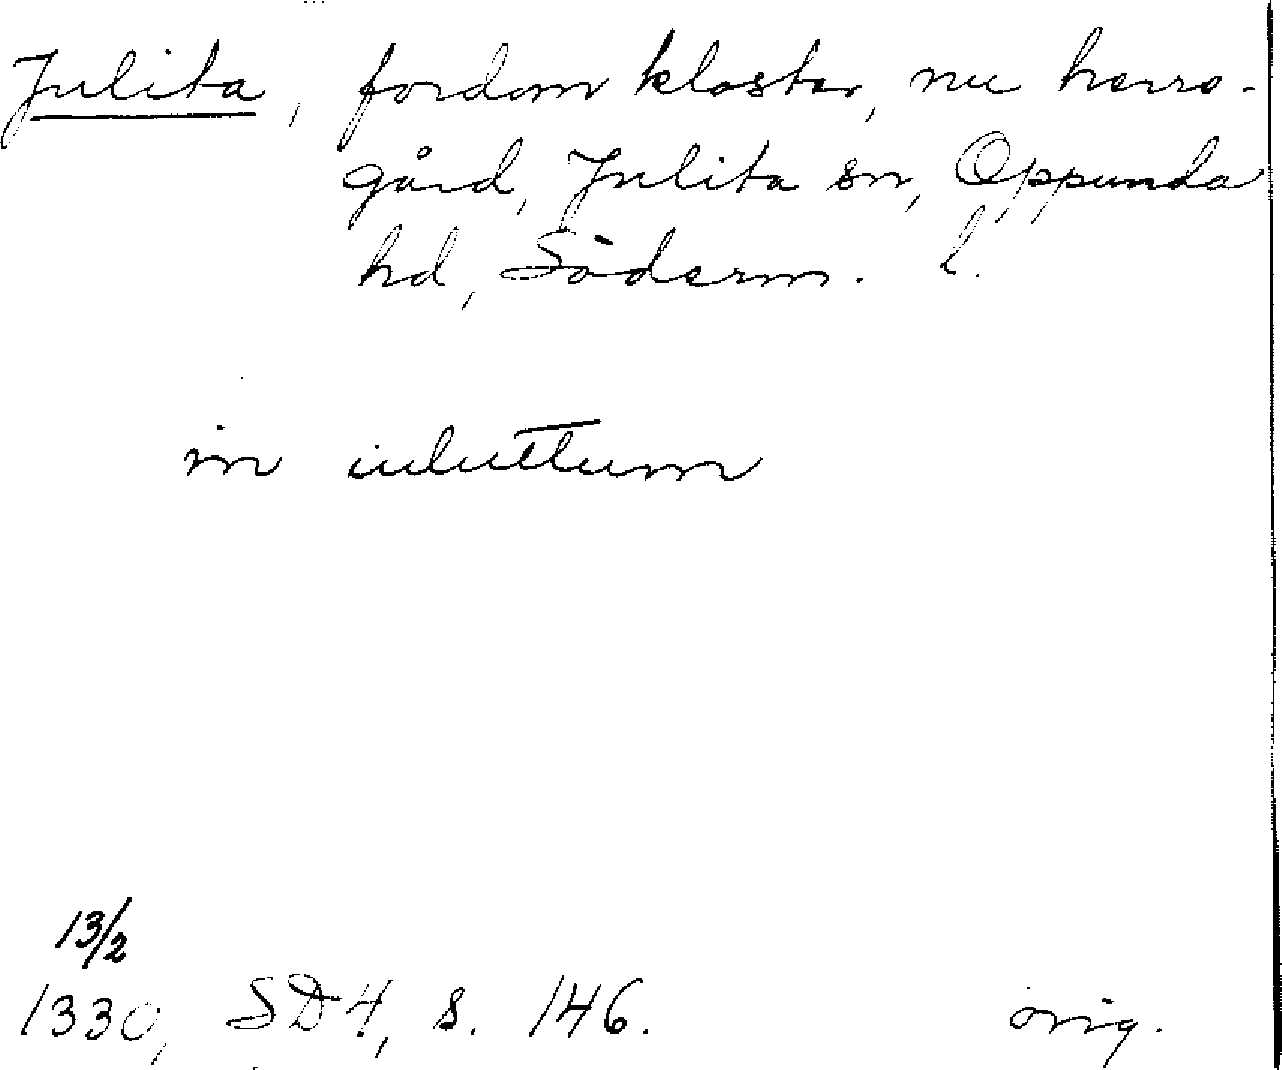 Julita, fordom kloster, nu herre-
gård, Julita sn, Oppunda
hd, Söderm. l.
in iuluttum
13/2
1330, SD4, s. 146.
orig.